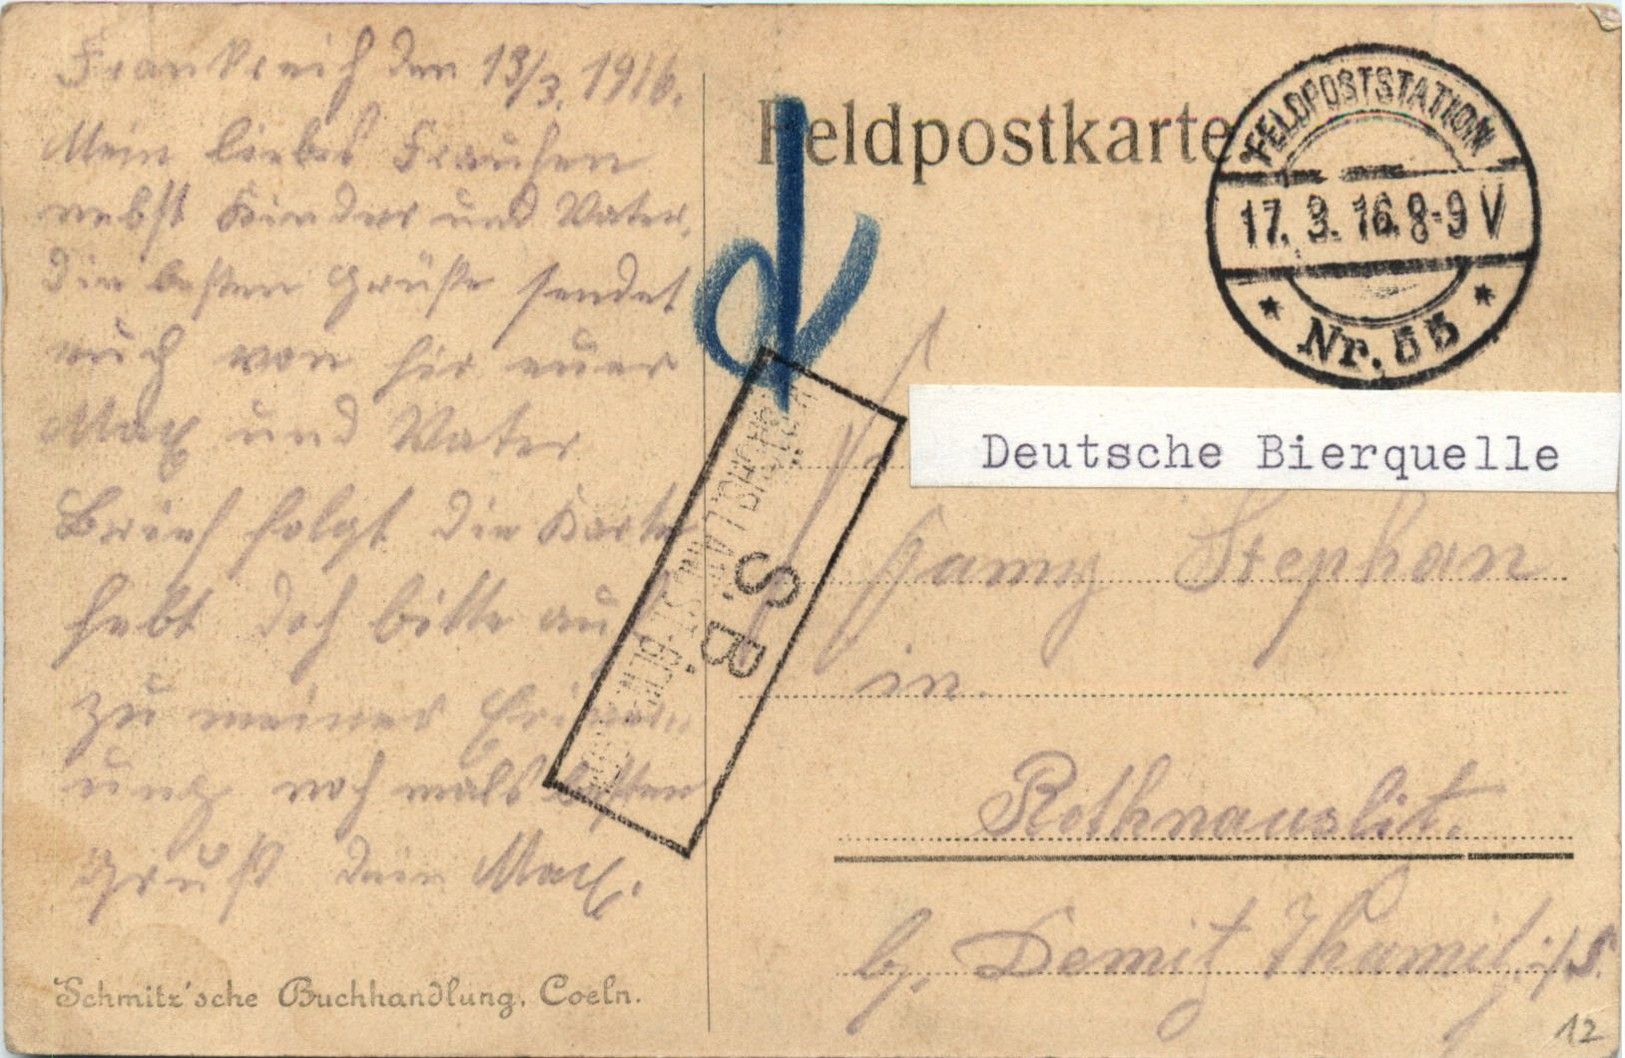 Frankreich den 13/3. 1916.
Mein liebes Frauchen
nebst Kinder und Vater.
Die besten Grüße sendet
euch von hir euer
Max und Vater
Brief folgt die Karte
hebt doch bitte auf
zu meiner Erinner
ung noch mals besten
Gruß dein Max.
Schmitz'sche Buchhandlung, Coeln.
Feldpostkarte
FELDPOSTSTATION
17. 3. 16. 8-9 V
* Nr. 55 *
Deutsche Bierquelle
S.B
Stephan
in.
Rothnauslitz.
b. Demitz Thumitz i/S.
12